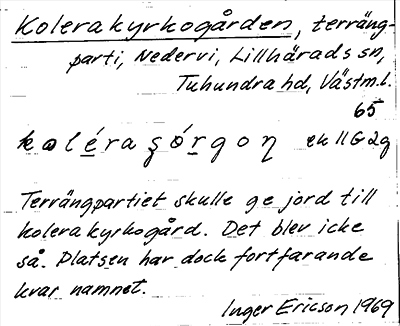 Kolerakyrkogården, terräng-
parti, Nedervi, Lillhärads sn,
Tuhundra hd, Västm.l.
65
koléraşórgoƞ ek 11G2g
Terrängpartiet skulle ge jord till
kolerakyrkogård. Det blev icke
så. Platsen har dock fortfarande
kvar namnet.
Inger Ericson 1969